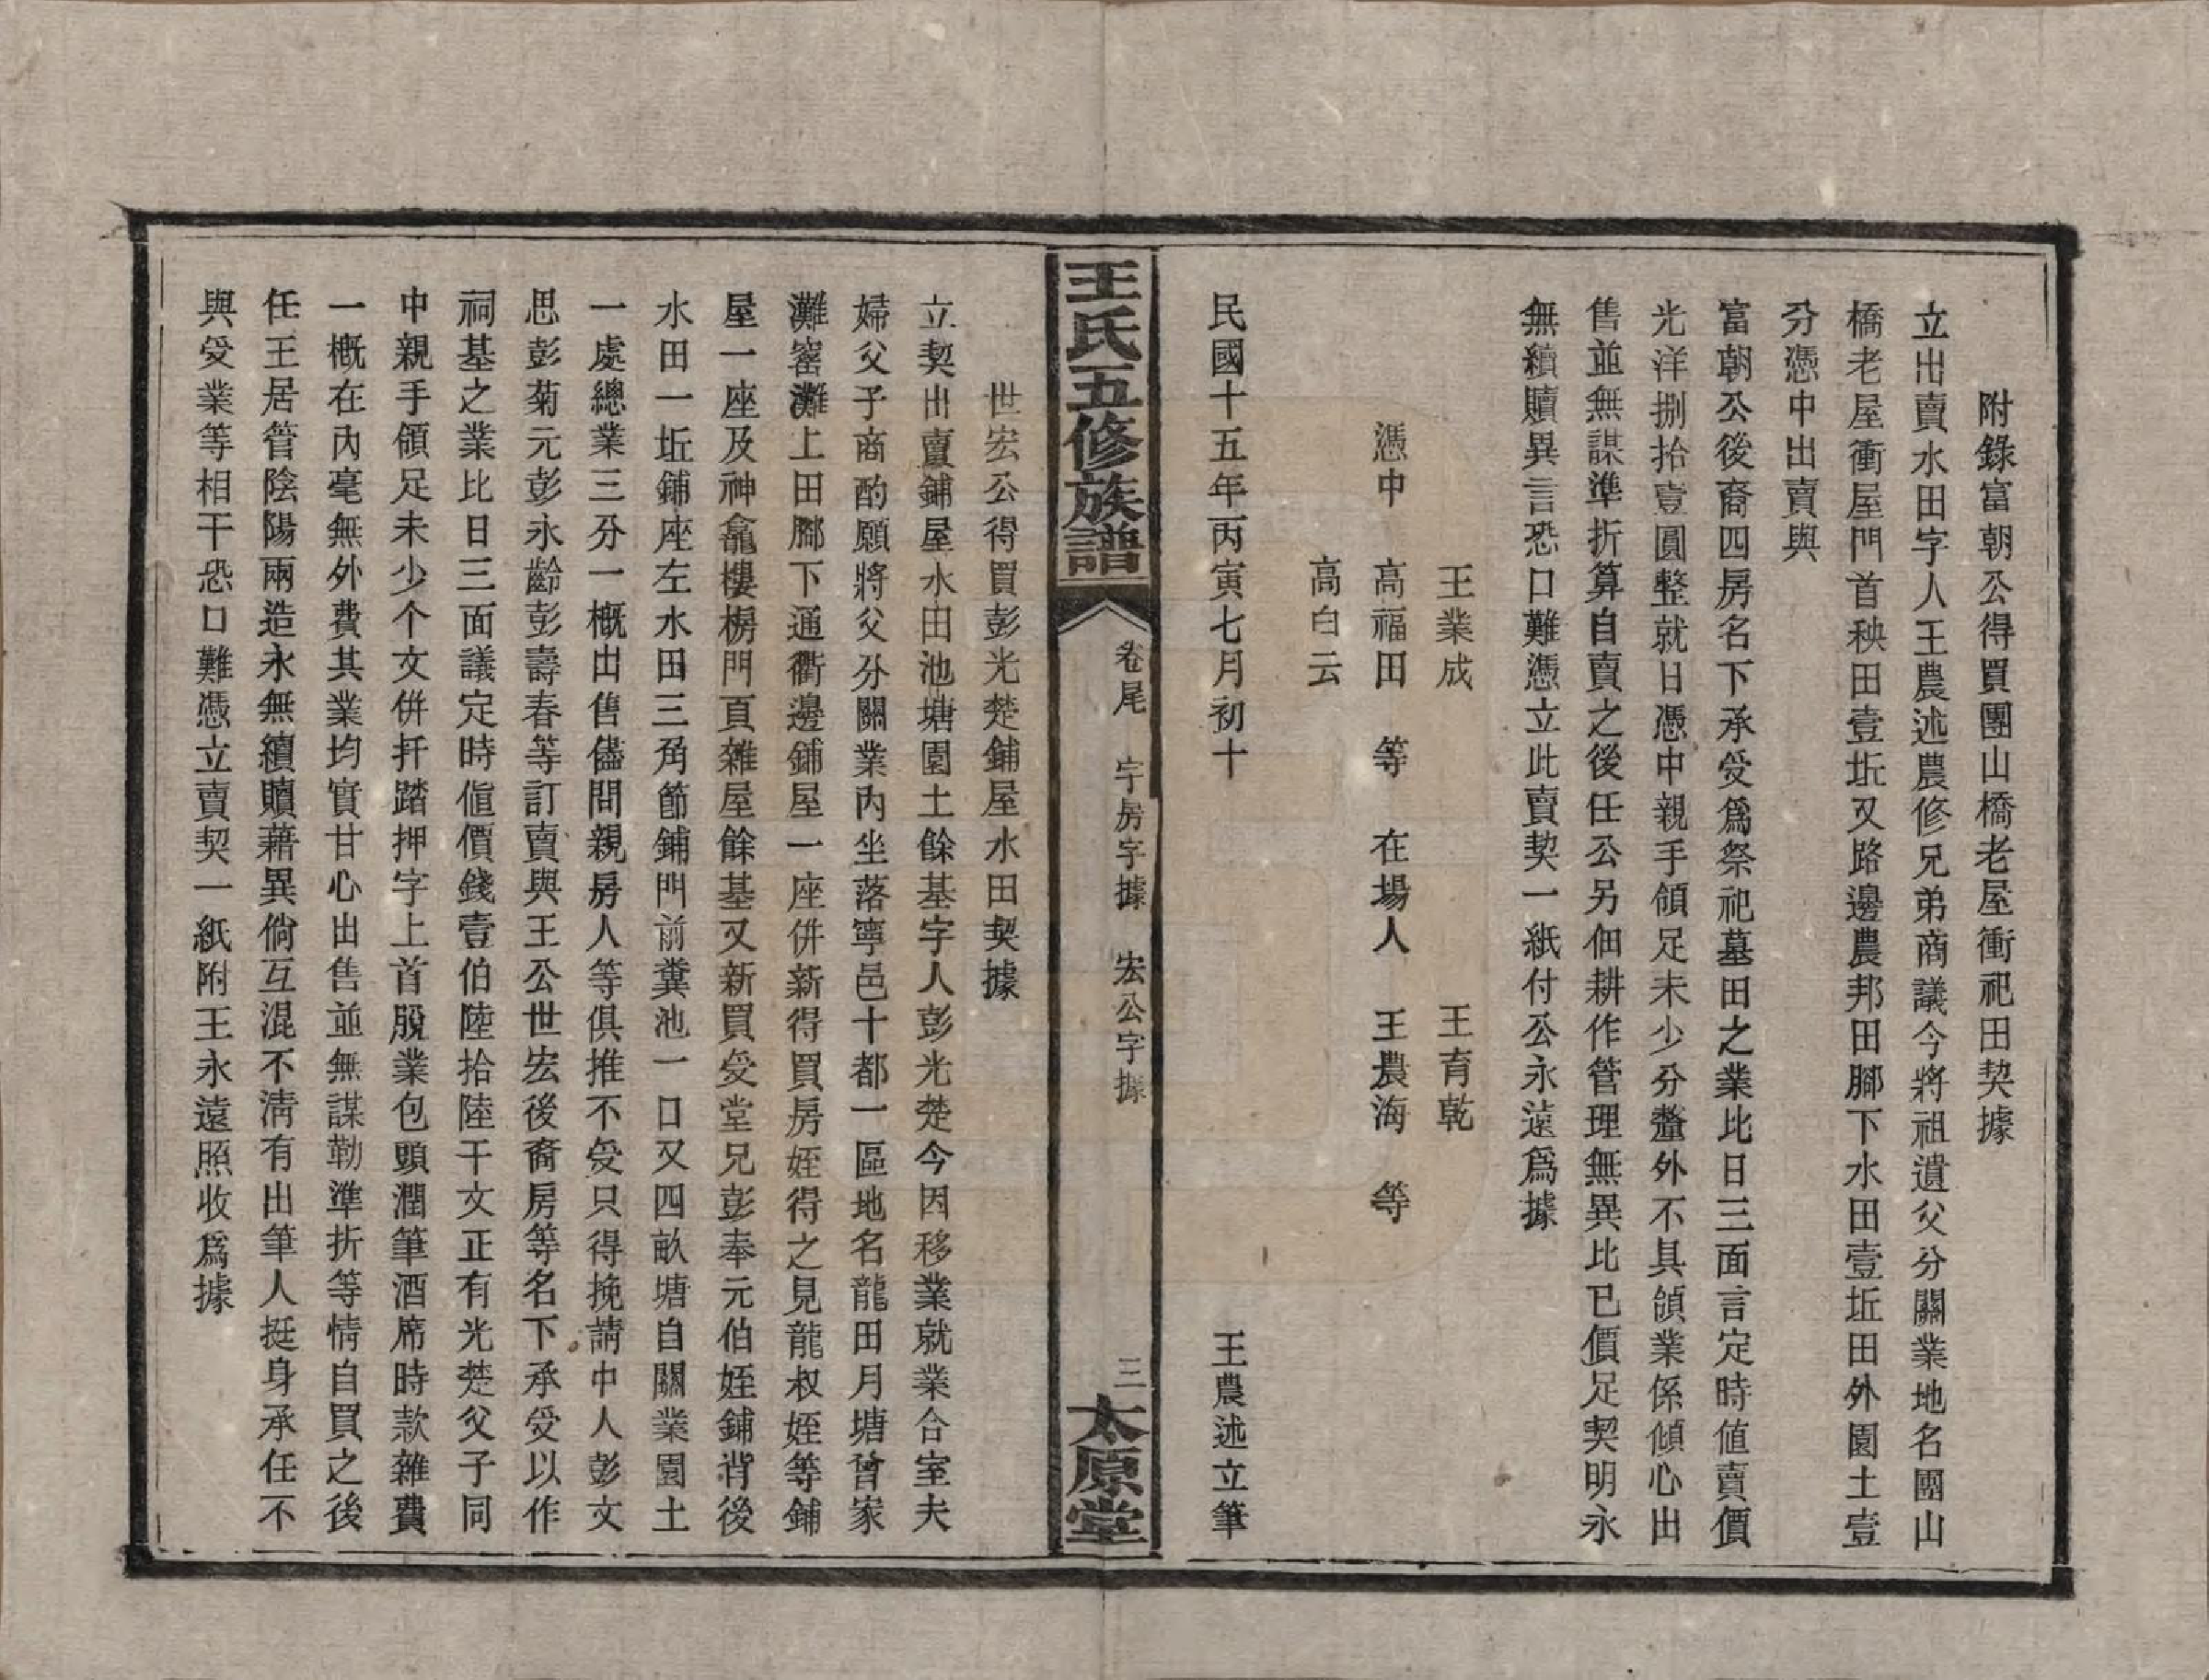 附錄富朝公得買團山橋老屋衝祀田契據
立出賣水田字人王農述農修兄弟商議今將祖遺父分關業地名團山
橋老屋衝屋門首秧田壹坵又路邊農邦田腳下水田壹坵田外園土壹
分憑中出賣與
富朝公後裔四房名下承受爲祭祀墓田之業比日三面言定時値賣價
光洋捌拾壹圓整就日憑中親手領足未少分釐外不具領業係傾心出
售並無謀準折算自賣之後任公另佃耕作管理無異比已價足契明永
無續贖異言恐口難憑立此賣契一紙付公永遠爲據
王業成　王育乾
憑中　高福田　等　在場人　王農海　等
高白云
民國十五年丙寅七月初十　王農述立筆
王氏五修族譜　卷尾　宇房字據　宏公字據　三　太原堂
世宏公得買彭光楚鋪屋水田契據
立契出賣鋪屋水田池塘園土餘基字人彭光楚今因移業就業合室夫
婦父子商酌願將父分關業內坐落寧邑十都一區地名龍田月塘曾家
灘窰灘上田腳下通衢邊鋪屋一座併薪得買房姪得之見龍叔姪等鋪
屋一座及神龕樓枴門頁雜屋餘基又新買受堂兄彭奉元伯姪鋪背後
水田一坵鋪座左水田三角節鋪門前糞池一口又四畝塘自關業園土
一處總業三分一概出售儘問親房人等俱推不受只得挽請中人彭文
思彭菊元彭永齡彭壽春等訂賣與王公世宏後裔房等名下承受以作
祠基之業比日三面議定時値價錢壹伯陸拾陸千文正有光楚父子同
中親手領足未少个文併扦踏押字上首脫業包頭潤筆酒席時款雜費
一概在內毫無外費其業均實甘心出售並無謀勒準折等情自買之後
任王居管陰陽兩造永無續贖藉異倘互混不淸有出筆人挺身承任不
與受業等相干恐口難憑立賣契一紙附王永遠照收爲據